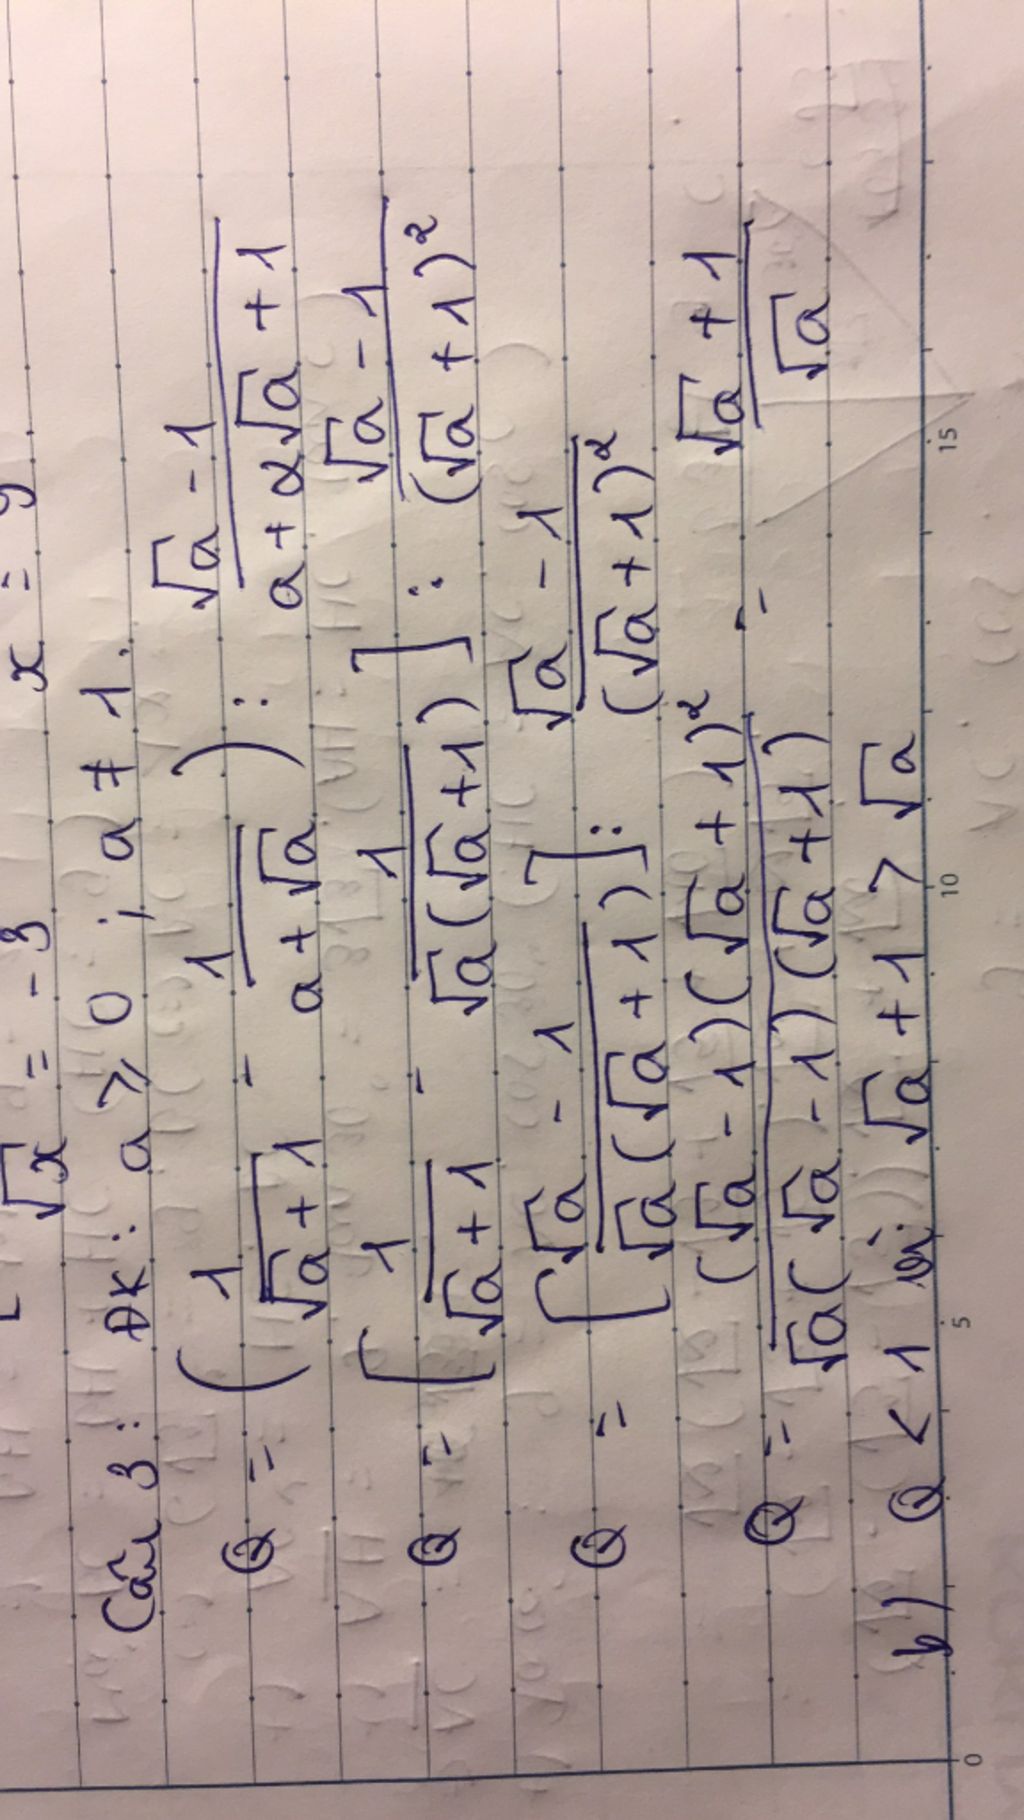 √x = -3 x = 9
Câu 3: ĐK: a ⩾ 0 ; a ≠ 1.
Q = (1/(√a + 1) - 1/(a + √a)) : (√a - 1)/(a + 2√a + 1)
Q = [1/(√a + 1) - 1/(√a(√a + 1))] : (√a - 1)/(√a + 1)²
Q = [(√a - 1)/(√a(√a + 1))] : (√a - 1)/(√a + 1)²
Q = ((√a - 1)(√a + 1)²)/(√a(√a - 1)(√a + 1)) = (√a + 1)/√a
b) Q < 1 vì √a + 1 > √a
0 5 10 15